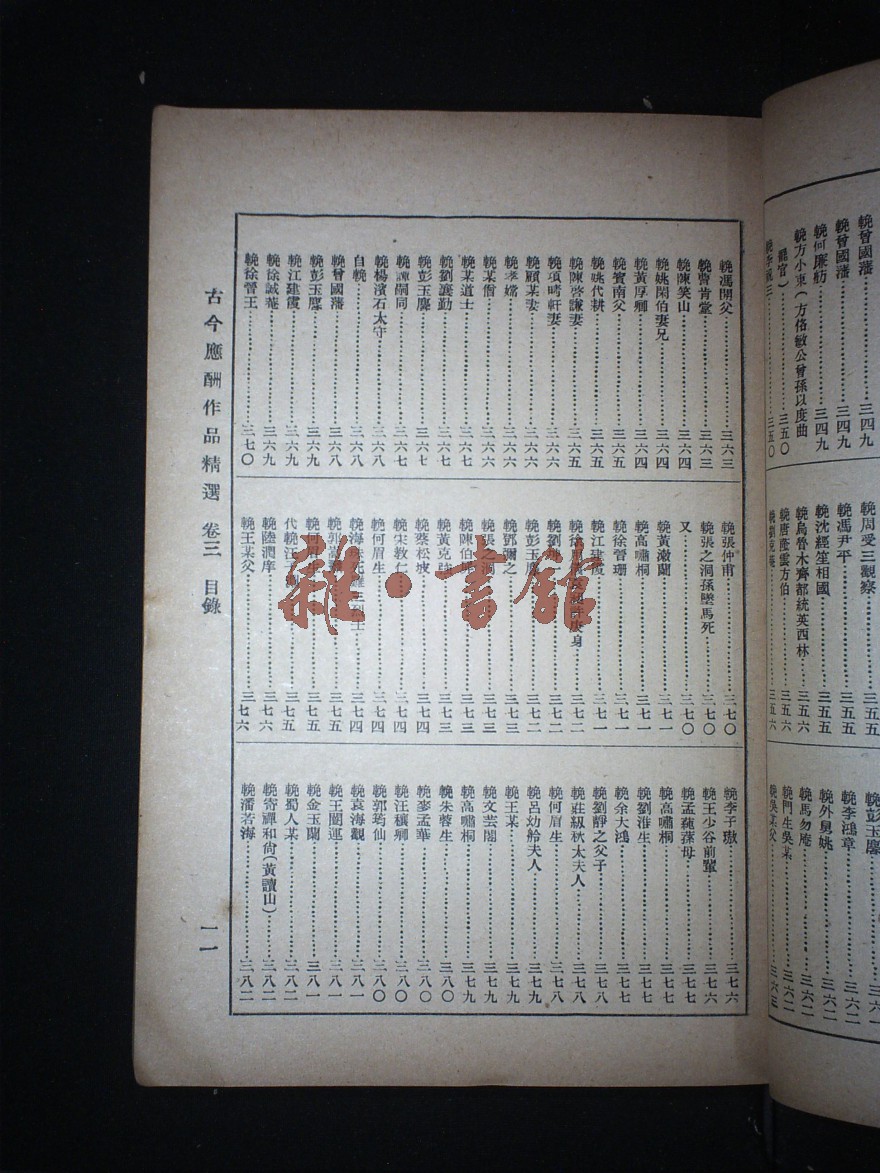 輓曾國藩……三四九
輓曾國藩……三四九
輓何廉舫……三四九
輓方小東(方恪敏公曾孫以度曲
罷官)……三五〇
輓周受三觀察……三五五
輓馮尹平……三五五
輓沈經笙相國……三五五
輓烏魯木齊都統英西林……三五六
輓唐蔭雲方伯……三五六
輓彭玉麐……三六一
輓李鴻章……三六二
輓外舅姚……三六二
輓馬勿庵……三六二
輓門生吳某……三六二
輓吳某父……三六三
輓馮開父……三六三
輓曹肯堂……三六三
輓陳笑山……三六四
輓姚閑伯妻兄……三六四
輓黃厚卿……三六四
輓賓南父……三六五
輓姚代耕……三六五
輓陳啓謙妻……三六五
輓項晴軒妻……三六六
輓顧某妻……三六六
輓李嫦……三六六
輓某僧……三六六
輓某道士……三六七
輓劉襄勤……三六七
輓彭玉麐……三六七
輓譚嗣同……三六七
輓楊濱石太守……三六八
自輓……三六八
輓曾國藩……三六八
輓彭玉麐……三六九
輓江建霞……三六九
輓徐誠菴……三六九
輓徐晉壬……三七〇
輓張仲甫……三七〇
輓張之洞孫墜馬死……三七〇
又……三七〇
輓黃漱蘭……三七一
輓高嘯桐……三七一
輓徐晉珊……三七一
輓江建霞……三七一
三七二
輓劉
三七二
輓彭玉麐……三七二
輓鄧彌之……三七三
輓張之洞……三七三
輓陳伯
三七三
輓黃克強……三七三
輓蔡松坡……三七四
輓宋敎仁……三七四
輓何眉生……三七四
三七四
輓郭嵩
三七五
輓何眉生……三七五
代輓江
三七五
輓陸潤庠……三七六
輓王某父……三七六
輓李子璈……三七六
輓王少谷前輩……三七六
輓孟蒓蓀母……三七七
輓高嘯桐……三七七
輓劉淮生……三七七
輓余大鴻……三七七
輓劉靜之父子……三七八
輓莊級秋太夫人……三七八
輓何眉生……三七八
輓呂幼舲夫人……三七九
輓王某……三七九
輓文芸閣……三七九
輓高嘯桐……三七九
輓朱蓉生……三八〇
輓麥孟華……三八〇
輓汪穰卿……三八〇
輓郭筠仙……三八〇
輓袁海觀……三八一
輓王闓運……三八一
輓金玉蘭……三八一
輓蜀人某……三八二
輓寄禪和尙(黃讀山)……三八二
輓潘若海……三八二
古今應酬作品精選 卷三 目錄
一一
雜·書館